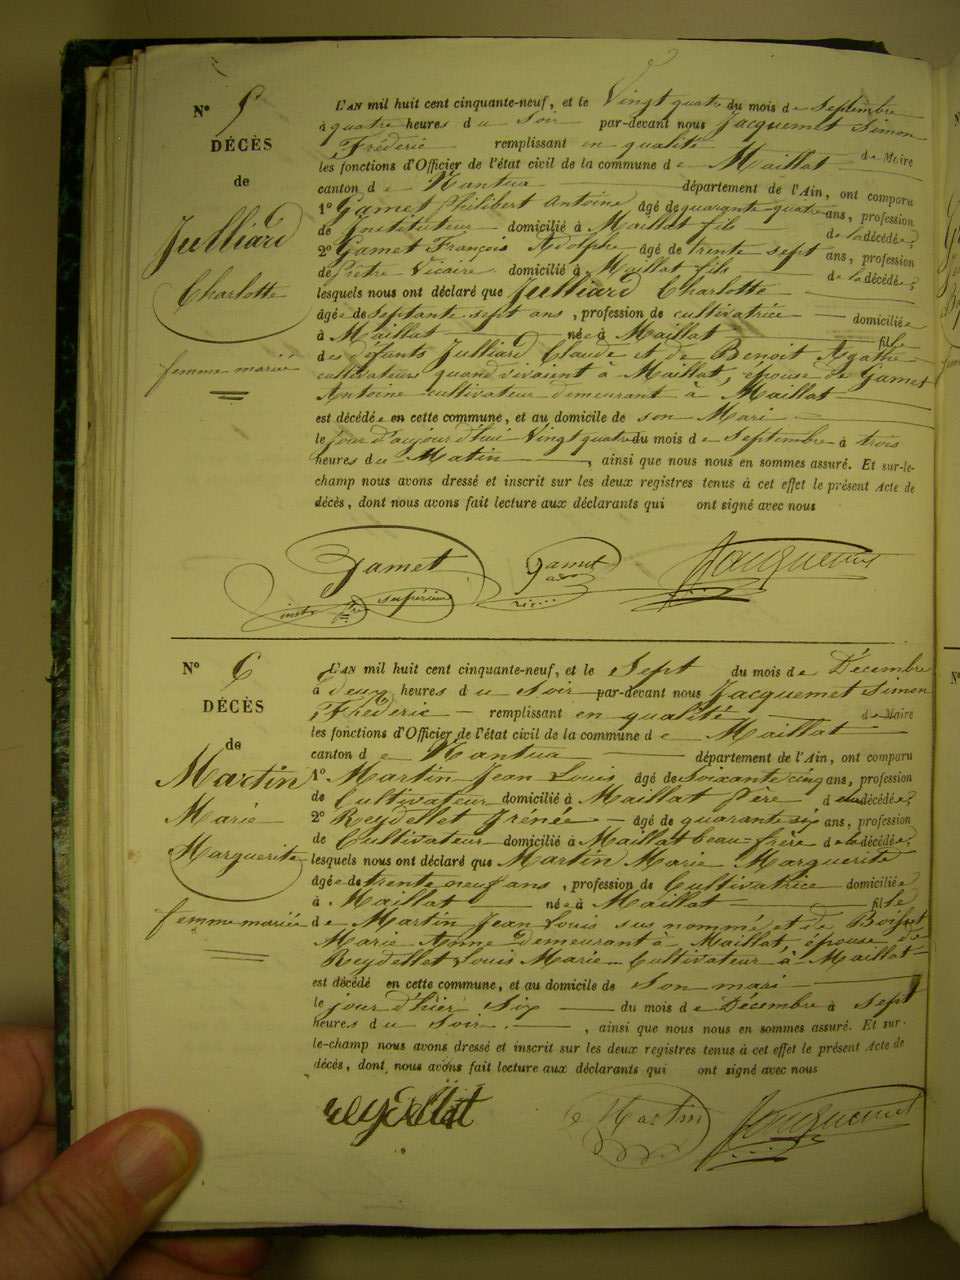 N° 5
DÉCÈS
de
Julliard
Charlotte
femme mariée
L'AN mil huit cent cinquante-neuf, et le Vingt quatre du mois de Septembre
à quatre heures du Soir par-devant nous Jacquemet Simon
Fréderic remplissant en qualité de Maire
les fonctions d'Officier de l'état civil de la commune de Maillat
canton de Nantua département de l'Ain, ont comparu
1° Gamet Philibert Antoine âgé de quarante quatre ans, profession
de Instituteur domicilié à Maillat fils de la décédée
2° Gamet François Adolphe âgé de trente sept ans, profession
de Prêtre Vicaire domicilié à Maillat fils de la décédée
lesquels nous ont déclaré que Julliard Charlotte
âgée de Septante sept ans, profession de cultivatrice domiciliée
à Maillat née à Maillat fille
des défunts Julliard Claude et de Benoit Agathe
cultivateurs quand vivaient à Maillat, épouse de Gamet
Antoine cultivateur demeurant à Maillat
est décédée en cette commune, et au domicile de son Mari
le jour d'aujourd'hui Vingt quatre du mois de Septembre à trois
heures du Matin, ainsi que nous nous en sommes assuré. Et sur-le-
champ nous avons dressé et inscrit sur les deux registres tenus à cet effet le présent Acte de
décès, dont nous avons fait lecture aux déclarants qui ont signé avec nous
Gamet Gamet Jacquemet
supérieur
N° 6
DÉCÈS
de
Martin
Marie
Marguerite
femme mariée
L'AN mil huit cent cinquante-neuf, et le Sept du mois de Décembre
à deux heures du Soir par-devant nous Jacquemet Simon
Fréderic remplissant en qualité de Maire
les fonctions d'Officier de l'état civil de la commune de Maillat
canton de Nantua département de l'Ain, ont comparu
1° Martin Jean Louis âgé de Soixante cinq ans, profession
de Cultivateur domicilié à Maillat père décédée
2° Reydellet Irénée âgé de quarante six ans, profession
de Cultivateur domicilié à Maillat beau-frère de la décédée
lesquels nous ont déclaré que Martin Marie Marguerite
âgée de trente neuf ans, profession de Cultivatrice domiciliée
à Maillat née à Maillat fille
de Martin Jean Louis sus nommé et de
Marie Anne demeurant à Maillat, épouse de
Reydellet Louis Marie Cultivateur à Maillat
est décédé en cette commune, et au domicile de Son mari
le jour d'hier Six du mois de Décembre à Sept
heures du Soir, ainsi que nous nous en sommes assuré. Et sur-
le-champ nous avons dressé et inscrit sur les deux registres tenus à cet effet le présent Acte de
décès, dont nous avons fait lecture aux déclarants qui ont signé avec nous
reydellet Martin Jacquemet